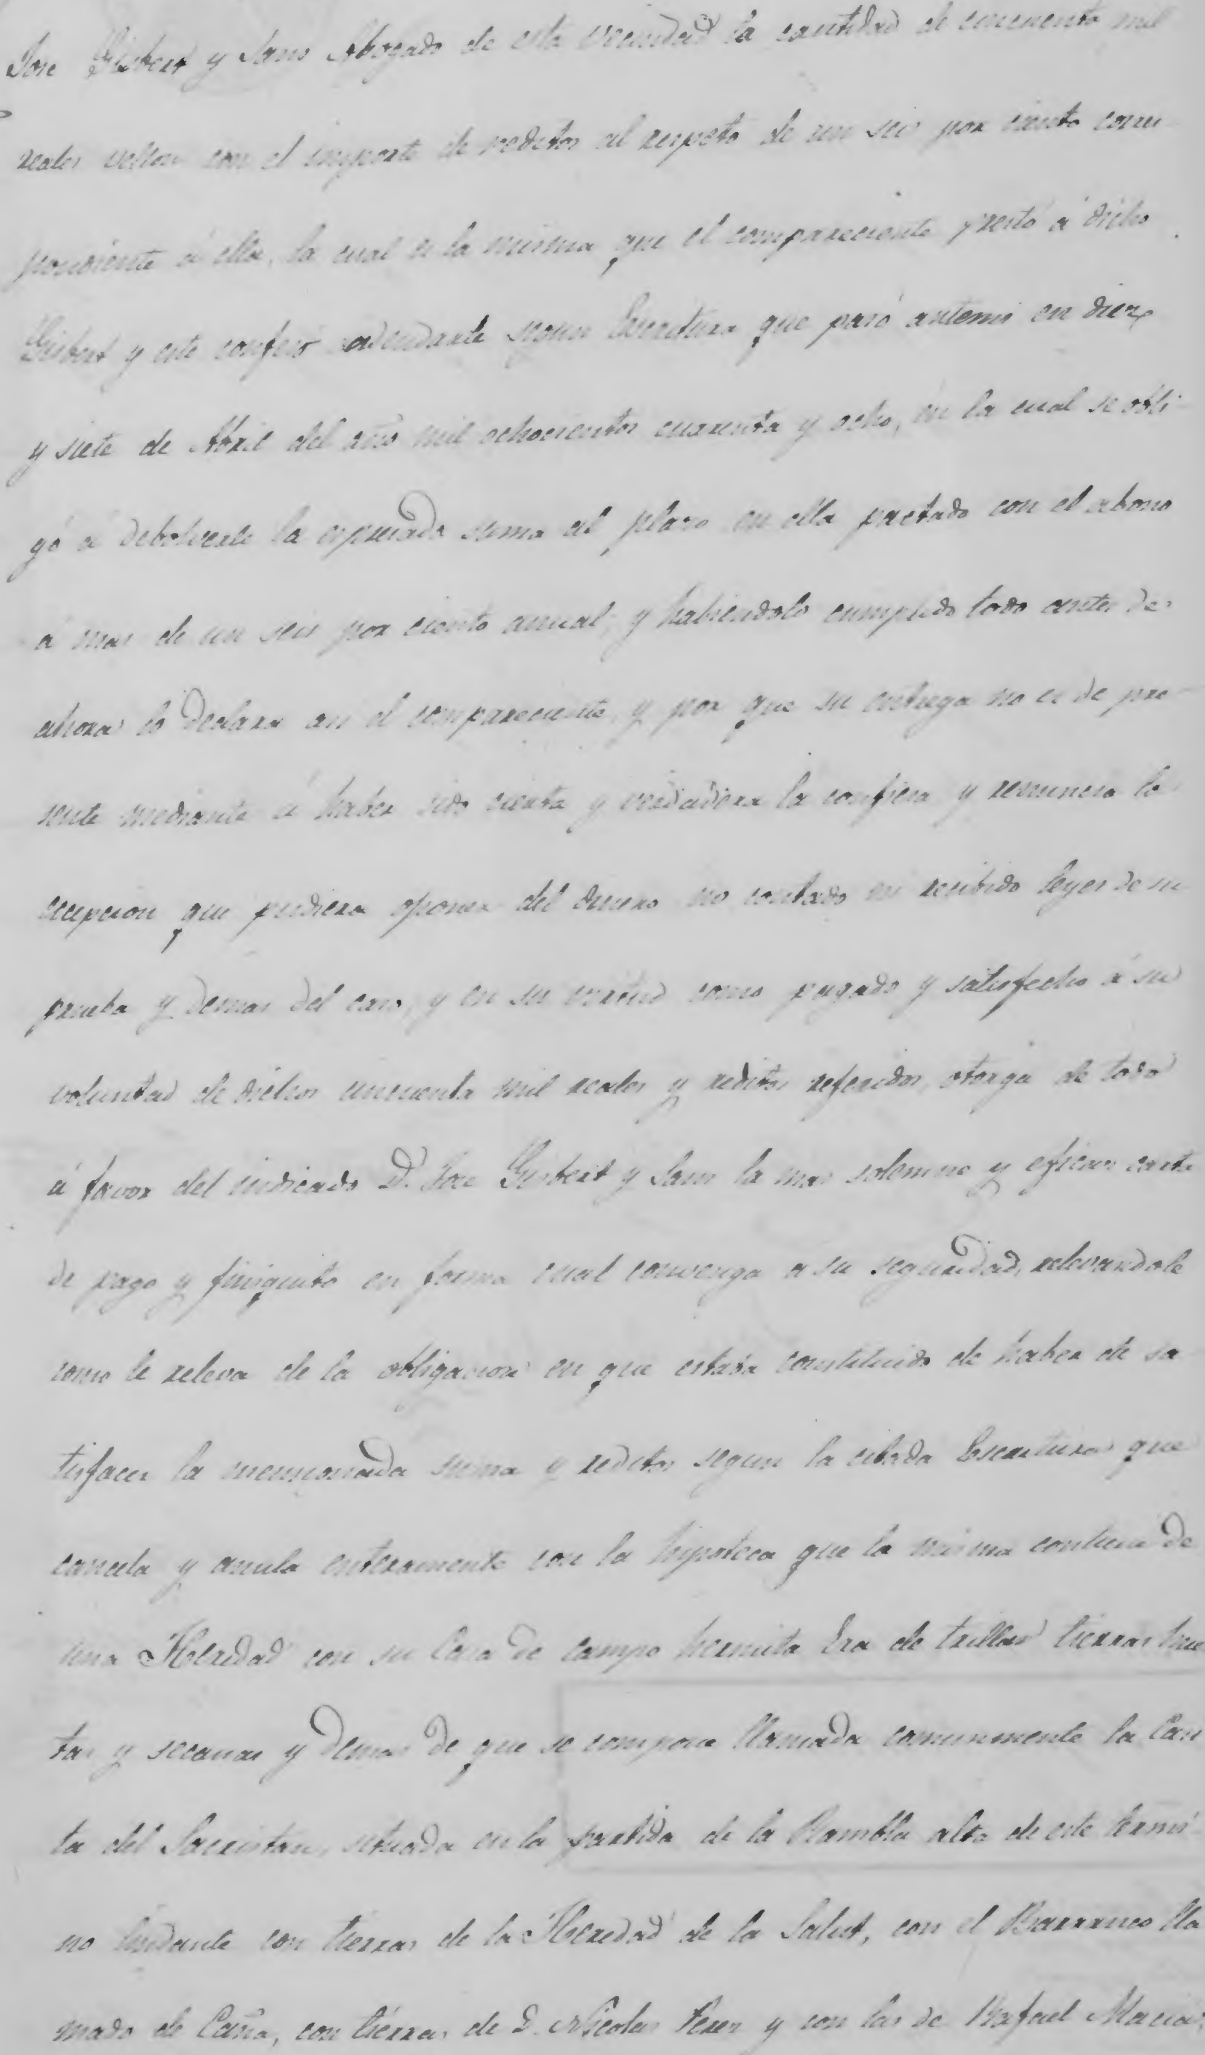 Jose Gisbert y Sans Abogado de esta vecindad la cantidad de cincuenta mil
reales vellon con el importe de reditos al respeto de un seis por ciento corres
pondiente á ella, la cual es la misma que el compareciente prestó á dicho
Gisbert y este confesó adeudarle segun Escritura que pasó antemi en diez
y siete de Abril del año mil ochocientos cuarenta y ocho, en la cual se obli-
gó á debolverle la espresada suma al plazo en ella pactado con el abono
a mas de un seis por ciento anual; y habiendolo cumplido todo antes de
ahora lo declara asi el compareciente, y por que su entrega no es de pre-
sente mediante á haber sido cierta y verdadera la confiesa y renuncia la
ecepcion que pudiera oponer del dinero no contado ni recibido leyes de su
prueba y demas del caso, y en su virtud como pagado y satisfecho á su
voluntad de dichos cincuenta mil reales y reditos referidos, otorga de todo
á favor del indicado D. Jose Gisbert y Sans la mas solemne y eficaz carta
de pago y finiquito en forma cual convenga a su seguridad, relevandole
como le releva de la obligacion en que estaba constituido de haber de sa-
tisfacer la mencionada suma y reditos segun la citada Escritura que
cancela y anula enteramente con la hipoteca que la misma contiene de
una Heredad con su Casa de campo hermita Era de trillar tierras huer
tas y secanas y demas de que se compone llamada comunmente la Can
ta del Sacristan, situada en la partida de la Rambla alta de este termi-
no lindante con tierras de la Heredad de la Salut, con el Barranco lla
mado de Caña, con tierras de D. Nicolas Perez y con las de Rafael Macia,